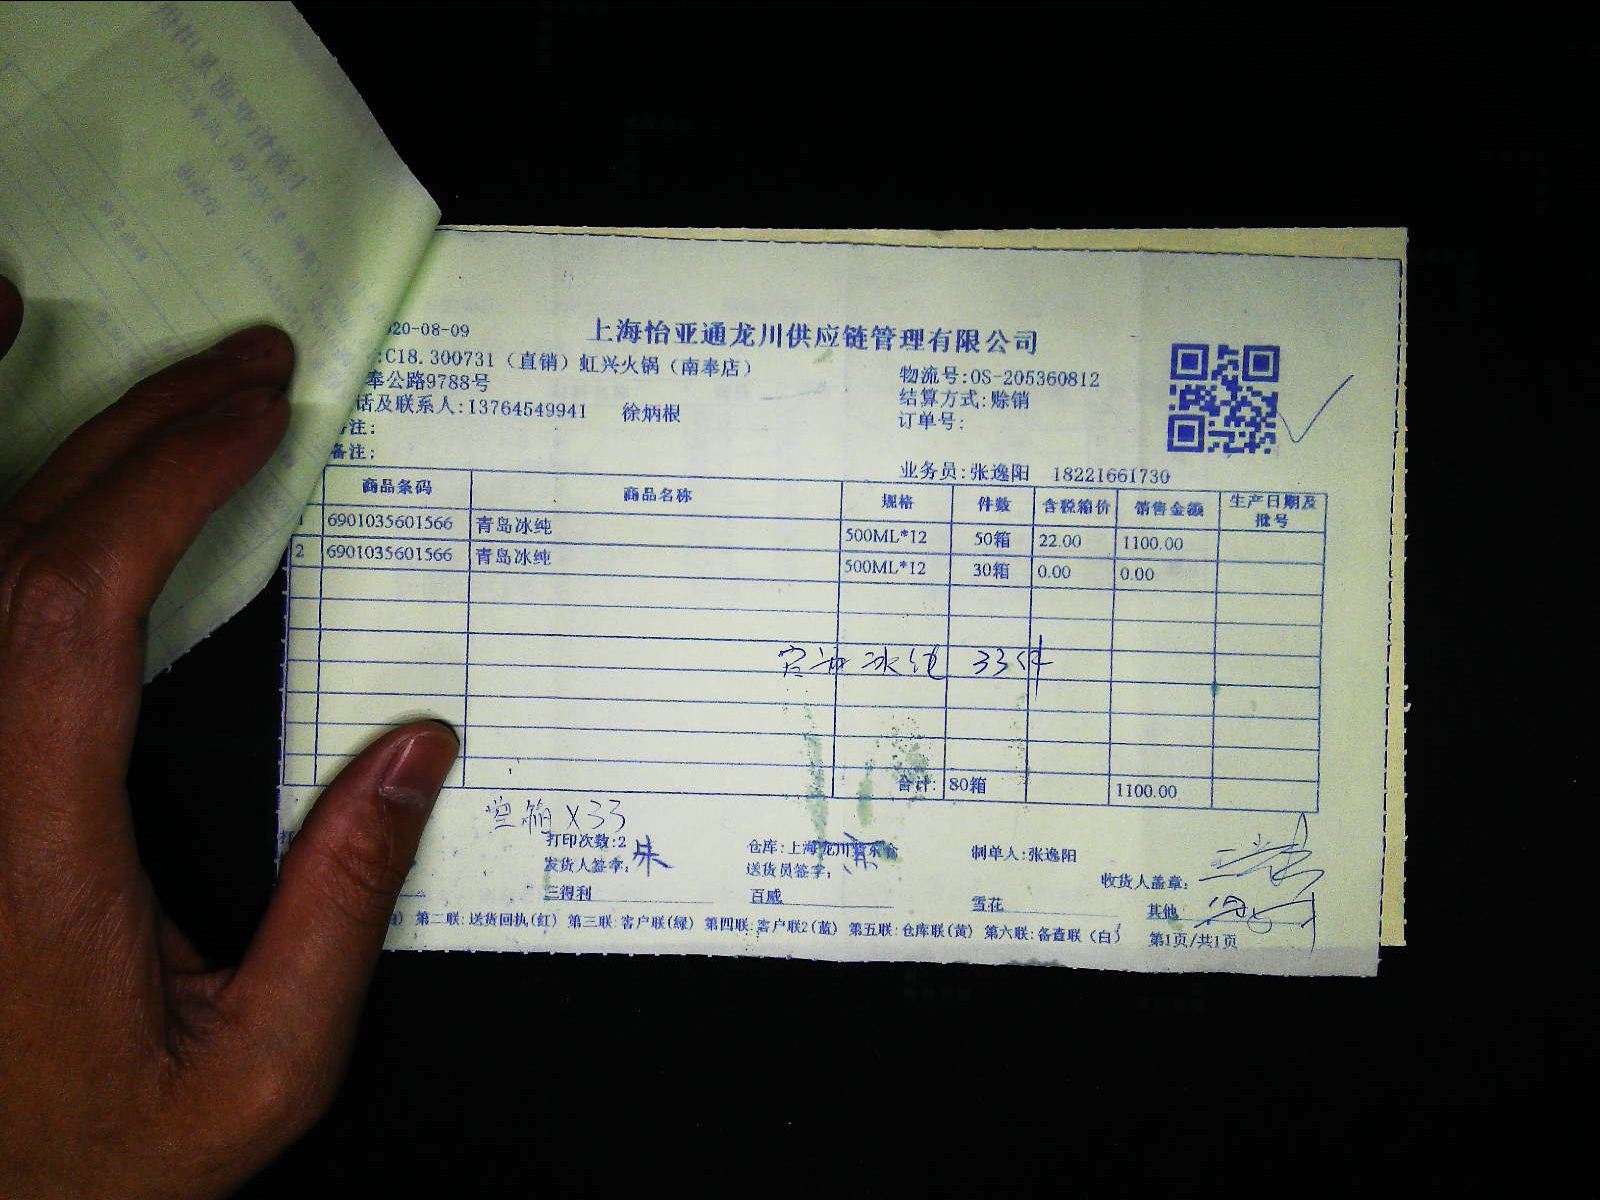 20-08-09
上海怡亚通龙川供应链管理有限公司
:C18.300731（直销）虹兴火锅（南奉店）
物流号:OS-205360812
奉公路9788号
结算方式:赊销
话及联系人:13764549941 徐炳根
订单号:
备注:
备注:
业务员:张逸阳 18221661730
商品条码 商品名称 规格 件数 含税箱价 销售金额 生产日期及批号
1 6901035601566 青岛冰纯 500ML*12 50箱 22.00 1100.00
2 6901035601566 青岛冰纯 500ML*12 30箱 0.00 0.00
冰纯 33件
合计: 80箱 1100.00
空箱 X33
打印次数:2 仓库:上海龙川 制单人:张逸阳
发货人签字: 朱 送货员签字: 收货人盖章:
三得利 百威 雪花 其他
第二联:送货回执(红) 第三联:客户联(绿) 第四联:客户联2(蓝) 第五联:仓库联(黄) 第六联:备查联（白） 第1页/共1页